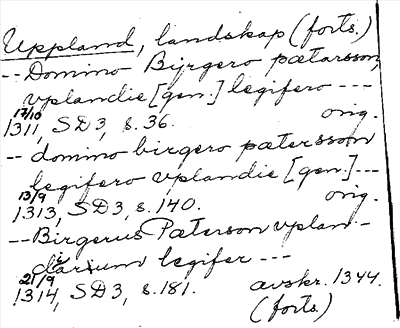 Uppland, landskap (forts.)
-- Domino Byrgero pætarsson,
vplandie [gen.] legifero ---
17/10 orig.
1311, SD3, s. 36.
-- domino birgero pætersson
legifero vplandie [gen.] ---
13/9 orig.
1313, SD3, s. 140.
-- Birgerus Pæterson vplan-
diarium legifer ---
21/9 avskr. 1344.
1314, SD3, s. 181.
(forts.)